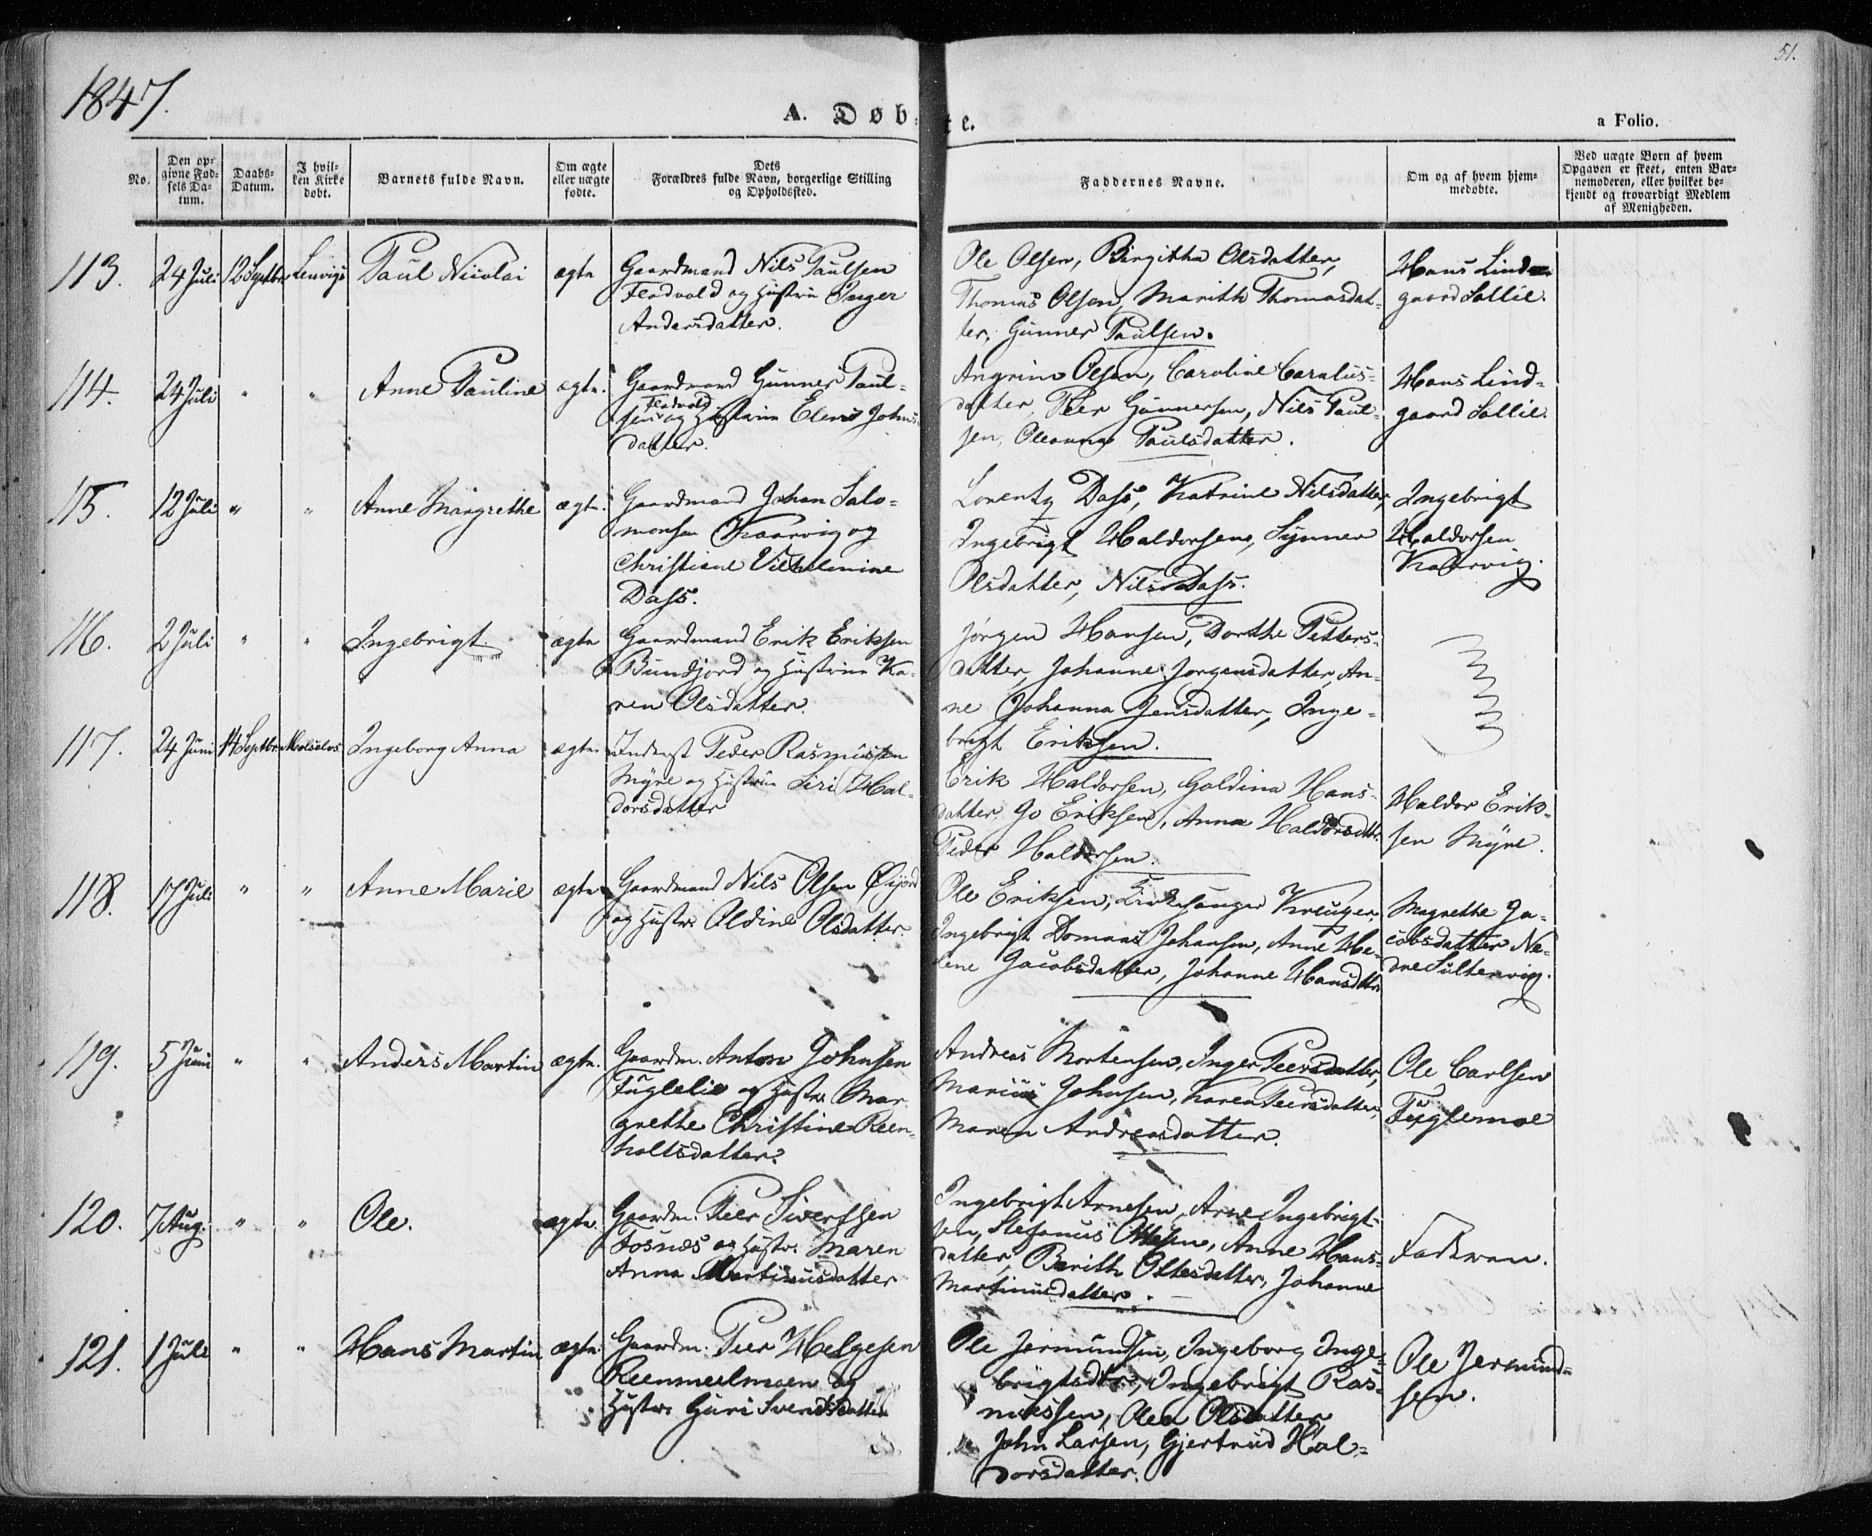 51.
1847.
A. Døbte.
a Folio.
No.
Den opgivne Fødsels Datum.
Daabs-Datum.
I hvilken Kirke døbt.
Barnets fulde Navn.
Om ægte eller uægte fødte.
Dets Forældres fulde Navn, borgerlige Stilling og Opholdssted.
Faddernes Navne.
Om og af hvem hjemmedøbte.
Ved uægte Børn af hvem Opgaven er skeet, enten Barnemoderen, eller hvilket bekjendt og troværdigt Medlem af Menigheden.
113. 24 Juli 12 Septbr Lenvigs Paul Nicolai ægte
Gaardmand Nils Paulsen
Fladvold og Hustrue Inger
Andersdatter.
Ole Olsen, Birgitha Olsdatter,
Thomas Olsen, Marith Thomasdat-
ter, Gunner Paulsen.
Hans Lind-
gaard Sollie.
114. 24 Juli " " Anne Pauline ægte.
Gaardmand Gunner Paul-
Fladvold
sen og Hustrue Elen Johns
datter.
Angrim Olsen, Caroline Carolus-
datter, Peer Gunnersen, Nils Paul-
sen, Oleanna Paulsdatter.
Hans Lind-
gaard Sollie.
115. 12 Juli " " Anne Margrethe ægte.
Gaardmand Johan Salo-
monsen Kaarvig og
Christiane Vilhelmine
Dass.
Lorentz Dass, Katrine Nilsdatter,
Ingebrigt Haldorsen, Synner
Olsdatter, Nils Dass.
Ingebrigt
Haldorsen
Kaarvig.
116. 2 Juli " " Ingebrigt ægte
Gaardmand Erik Eriksen
Bundjord og Hustrue Ka-
ren Olsdatter.
Jørgen Hansen, Dorthe Petters-
datter, Johanne Jørgensdatter, An-
ne Johanna Jensdatter, Inge-
brigt Eriksen.
117. 24 Juni 14 Septbr Maalselvs Ingeborg Anna ægte.
Inderst Peder Rasmussen
Myre og Hustrue Siri Hal-
dorsdatter
Erik Haldorsen, Goldina Hans-
datter, Jo Eriksen, Anna Haldorsdtr.
Peder Haldorsen.
Haldor Erik-
sen Myre.
118. 17 Juli " " Anne Marie ægte
Gaardmand Nils Olsen Øijord
og Hustr. Oldine Olsdatter.
Ole Eriksen, Kirkesanger Kreuger,
Ingebrigt Domaas Johansen, Anne He-
lene Jacobsdatter, Johanne Hansdtr.
Magrethe Ja-
cobsdatter Ne-
dre Sultenvig.
119. 5 Juni " " Anders Martin ægte.
Gaardm. Anton Johnsen
Fuglelie og Hustr. Mar
grethe Christine Reen-
holtsdatter.
Andreas Mortensen, Inger Peersdatter,
Marius Johnsen, Karen Peersdatter,
Maren Andreasdatter.
Ole Carlsen
Fuglemoe
120. 7 Aug. " " Ole. ægte.
Gaardm. Peer Sivertsen
Fosnæs og Hustr. Maren
Anna Martinusdatter
Ingebrigt Arnesen, Arne Ingebrigt-
sen, Stefanus Ottesen, Anne Hans-
datter, Berith Ottesdatter, Johanne
Martinusdatter.
Faderen.
121. 1 Juli " " Hans Martin ægte.
Gaardm. Peer Helgesen
Reenmeelmoen og
Hustr. Guri Svendsdatter
Ole Jermundsen, Ingeborg Inge-
brigtsdtr, Ingebrigt Ras-
mussen, Olea Olsdatter
John Larsen, Gjertrud Hal-
dorsdatter.
Ole Jermund-
sen.